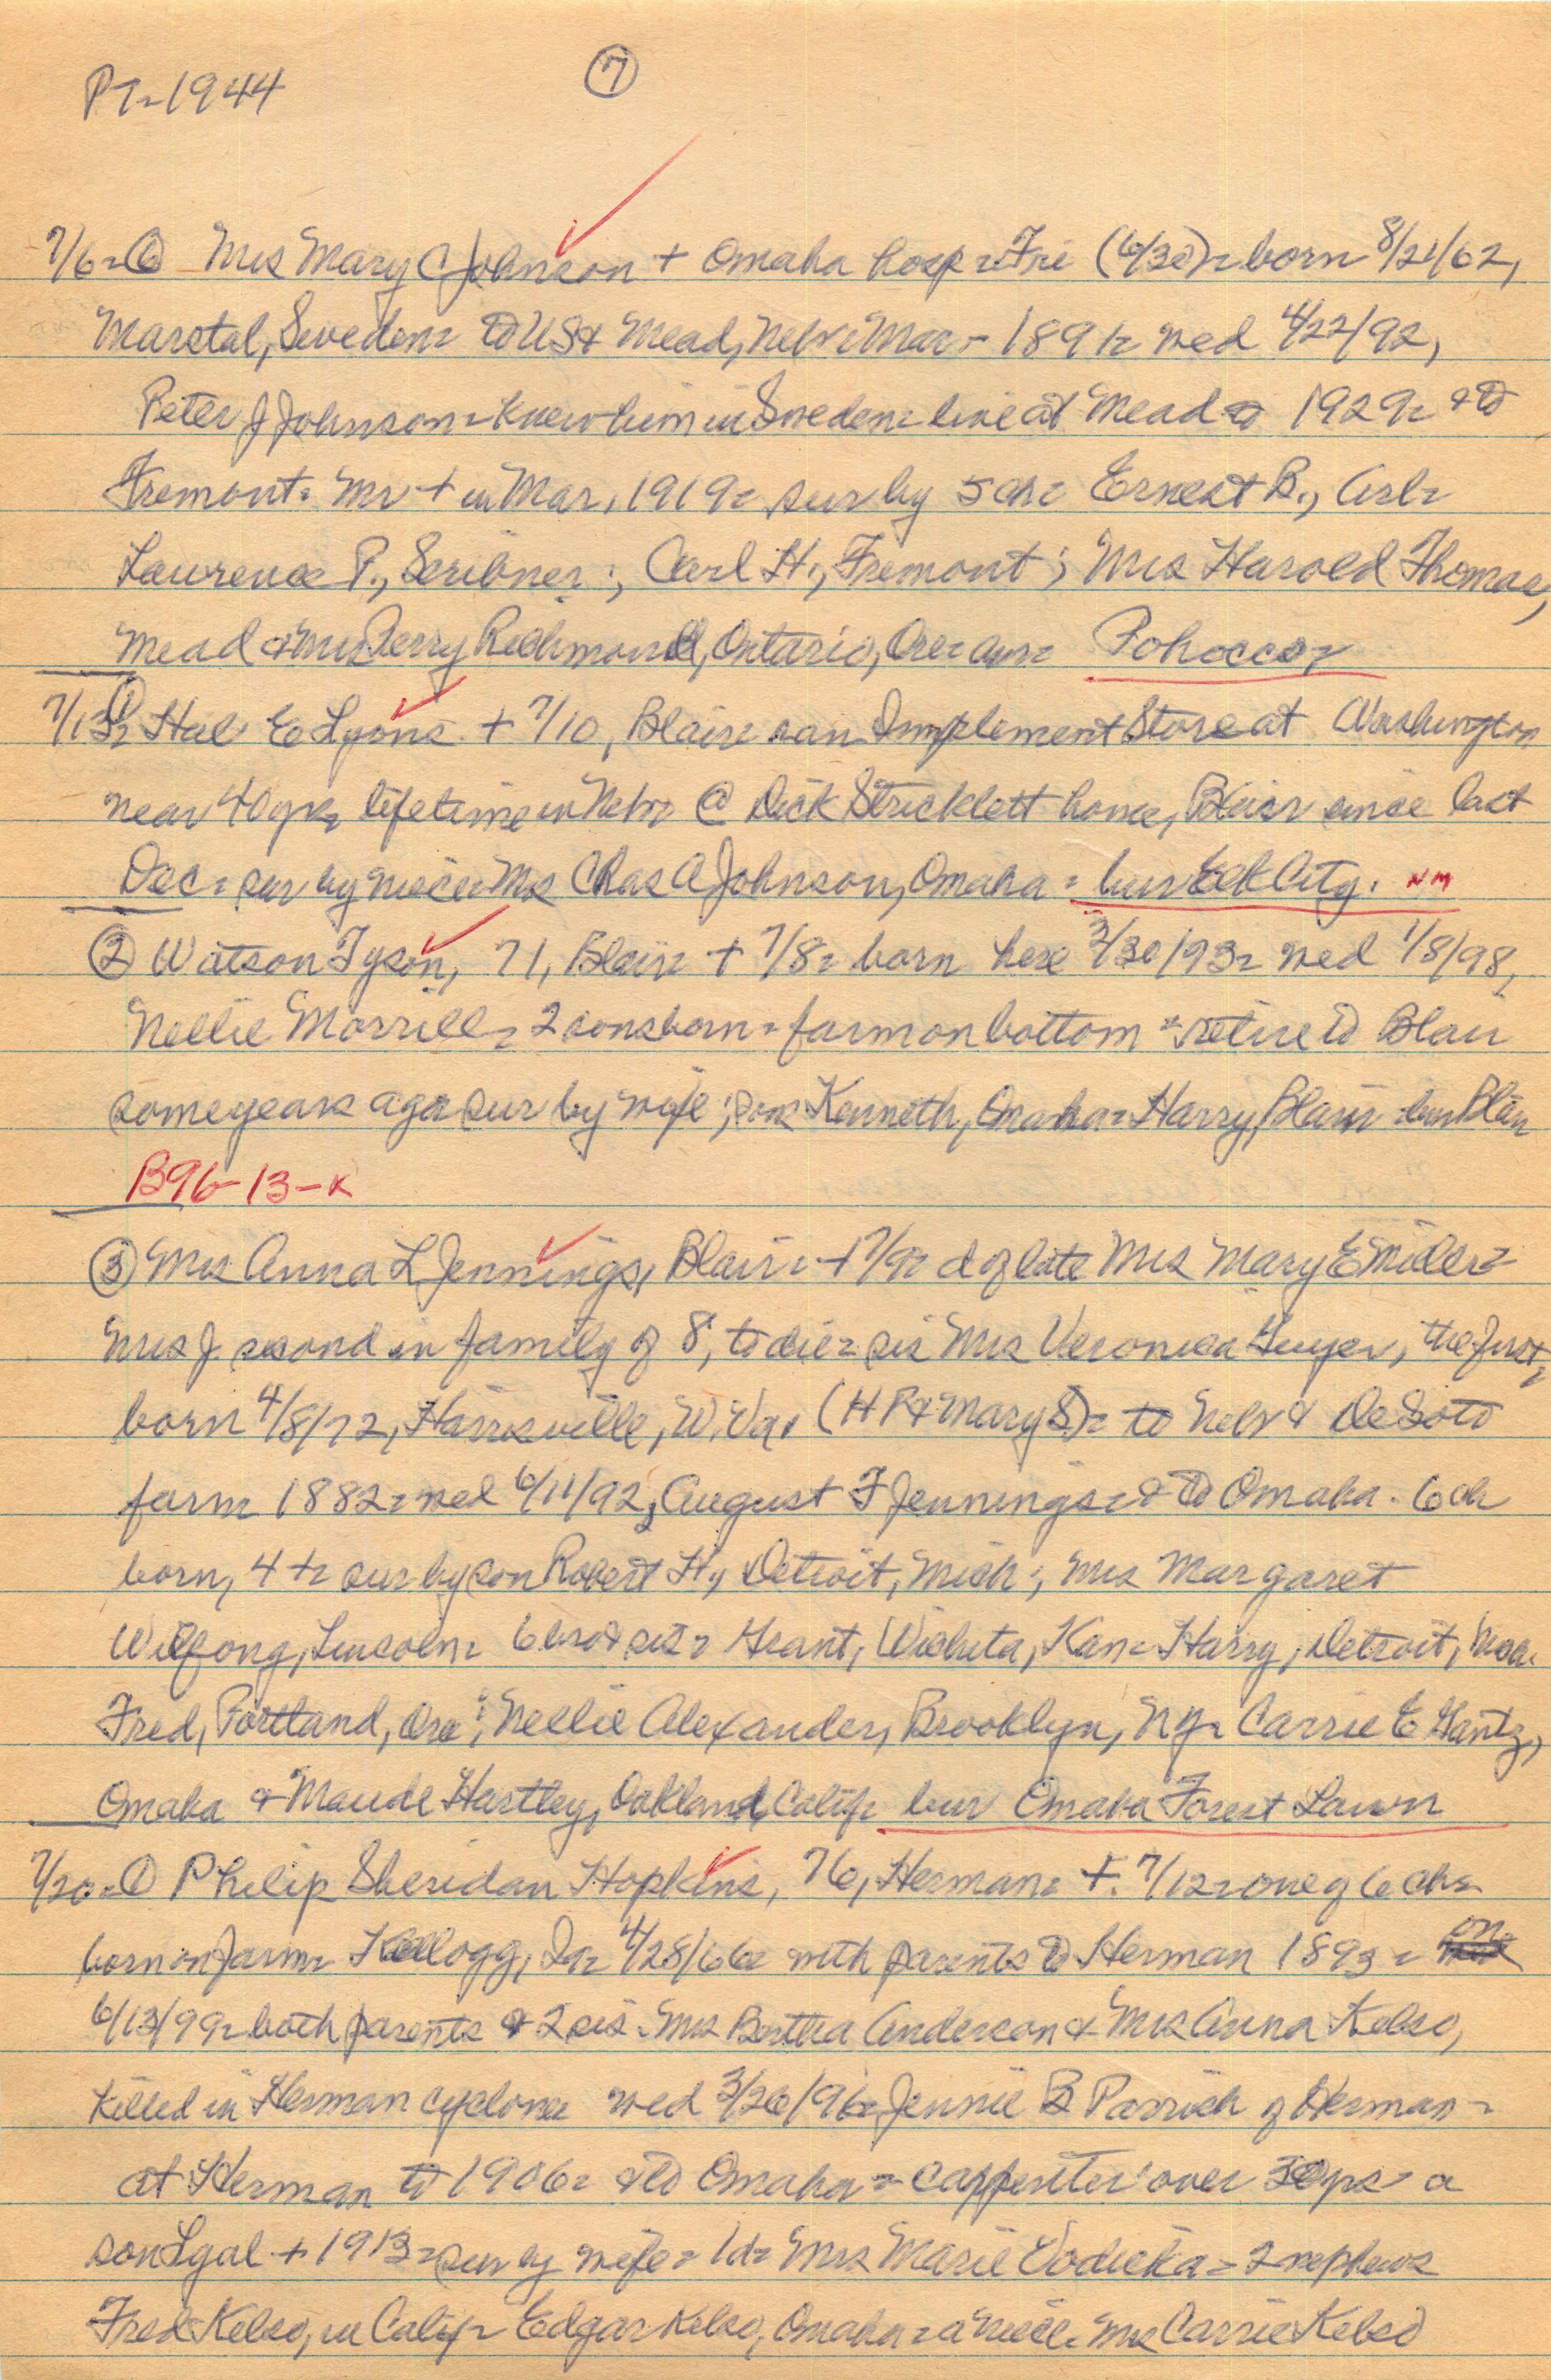 PT-1944
7
7/6-6 Mrs Mary C Johnson + Omaha hosp - Fri (6/30) - born 8/21/62,
Marstal, Sweden - to US & Mead, Nebr - Mar - 1891 - wed 4/22/92,
Peter J Johnson - knew him in Sweden - live at Mead to 1929 - & to
Fremont - Mr + in Mar, 1919 - sur by 5 ch - Ernest B., Arl -
Laurence P., Scribner ; Carl H., Fremont ; Mrs Harold Thomas,
Mead & Mrs Perry Richmond, Ontario, Ore - bur - Pohocco -
7/13 1 - Hal E Lyons + 7/10, Blair - ran Implement Store at Washington
near 40 yrs - lifetime in Nebr @ Dick Stricklett home, Blair since last
Dec - sur by niece Mrs Chas A Johnson, Omaha - bur Elk City. NM
2 Watson Tyson, 71, Blair + 7/8 - born here 3/30/93 - wed 1/8/98,
Nellie Morrill - 2 sons born - farm on bottom - retire to Blair
some years ago - sur by wife ; sons Kenneth, Omaha - Harry, Blair - bur Blair
B96-13-K
3 Mrs Anna L Jennings, Blair - + 7/9 - d of late Mrs Mary E Miller -
Mrs J. second in family of 8, to die - sis Mrs Veronica Guyer, the first,
born 4/8/72, Harrisville, W. Va, (H R & Mary S) - to Nebr & DeSoto
farm 1882 - wed 6/11/92, August F Jennings - & to Omaha - 6 ch
born, 4 + - sur by son Robert H, Detroit, Mich ; Mrs Margaret
Wilfong, Lincoln - 6 bro & sis - Grant, Wichita, Kan - Harry, Detroit, Mich.
Fred, Portland, Ore ; Nellie Alexander, Brooklyn, NY - Carrie E Gantz,
Omaha & Maude Hartley, Oakland, Calif - bur Omaha Forest Lawn
7/20-1 Philip Sheridan Hopkins, 76, Herman - + 7/12 - one of 6 ch -
born on farm - Kellogg, Ia - 4/28/68 - with parents to Herman 1893 - on
6/13/99 - both parents & 2 sis - Mrs Bertha Anderson & Mrs Anna Kelso,
killed in Herman cyclone - wed 3/26/96 - Jennie B Parrish of Herman -
at Herman to 1906 - & to Omaha - carpenter over 30 yrs - a
son Lyal + 1913 - sur by wife - 1 d - Mrs Marie Vodicka - 2 nephews
Fred Kelso, in Calif - Edgar Kelso, Omaha - a niece - Mrs Carrie Kelso